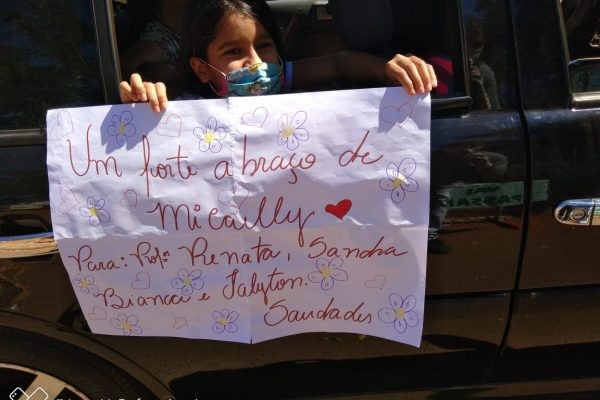 Um forte abraço de
Micailly
Para: Profª Renata, Sandra
Bianca e Talyton.
Saudades